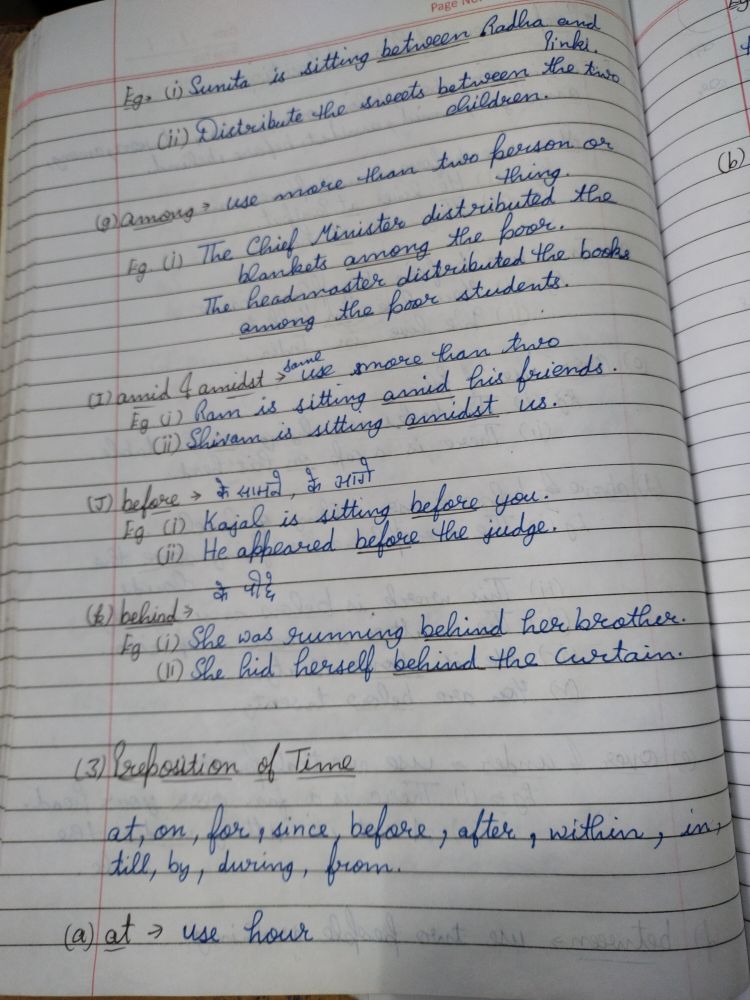 Page No.
Eg. (i) Sunita is sitting between Radha and
Pinki.
(ii) Distribute the sweets between the two
children.
(g) among → use more than two person or
thing.
Eg (i) The Chief Minister distributed the
blankets among the poor.
The headmaster distributed the books
among the poor students.
(I) amid & amidst → same use more than two
Eg (i) Ram is sitting amid his friends.
(ii) Shivam is sitting amidst us.
(J) before → के सामने, के आगे
Eg (i) Kajal is sitting before you.
(ii) He appeared before the judge.
के पीछे
(k) behind →
Eg (i) She was running behind her brother.
(ii) She hid herself behind the curtain.
(3) Preposition of Time
at, on, for, since, before, after, within, in,
till, by, during, from.
(a) at → use hour
(b)